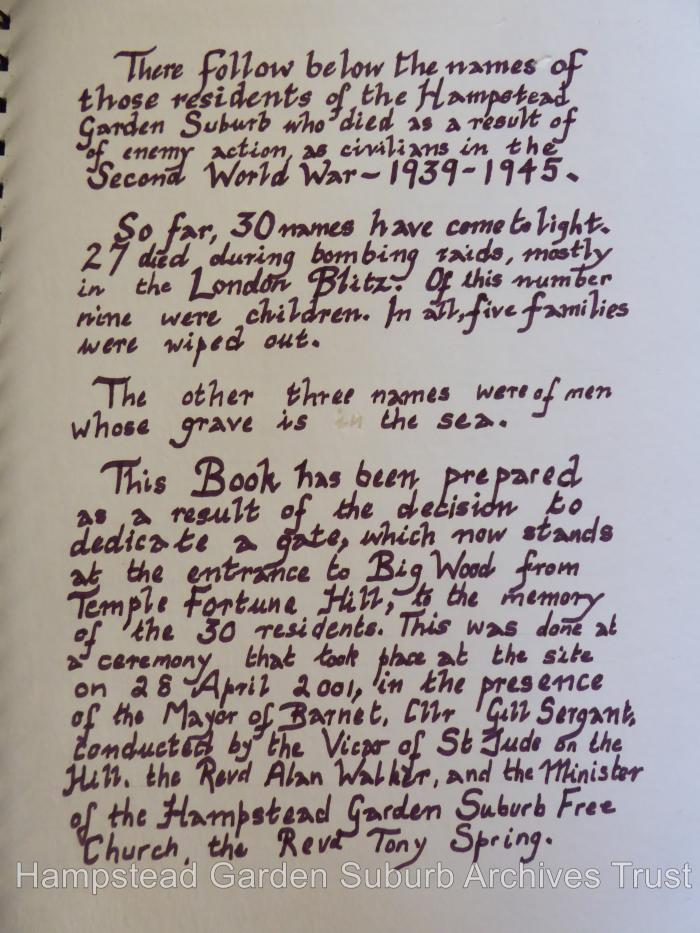 There follow below the names of
those residents of the Hampstead
Garden Suburb who died as a result of
of enemy action, as civilians in the
Second World War - 1939-1945.
So far, 30 names have come to light.
27 died during bombing raids, mostly
in the London Blitz. Of this number
nine were children. In all, five families
were wiped out.
The other three names were of men
whose grave is in the sea.
This Book has been prepared
as a result of the decision to
dedicate a gate, which now stands
at the entrance to Big Wood from
Temple Fortune Hill, to the memory
of the 30 residents. This was done at
a ceremony that took place at the site
on 28 April 2001, in the presence
of the Mayor of Barnet, Cllr Gill Sergant,
conducted by the Vicar of St Jude on the
Hill. the Revd Alan Walker, and the Minister
of the Hampstead Garden Suburb Free
Church, the Revd Tony Spring.
Hampstead Garden Suburb Archives Trust